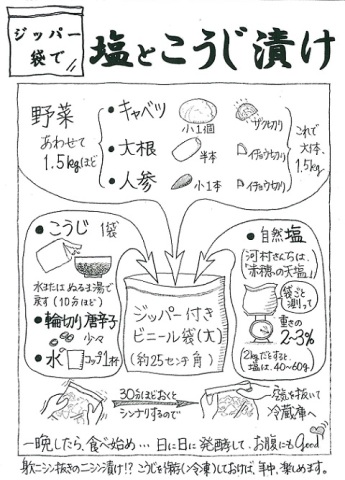 ジッパー
袋で!!
塩とこうじ漬け
野菜
あわせて
1.5kgほど
・キャベツ
小1個
ザク切り
・大根
半本
イチョウ切り
・人参
小1本
イチョウ切り
これで
大体
1.5kg
・こうじ 1袋
水または ぬるま湯で
戻す(10分ほど)
・輪切り唐辛子
少々
・水 コップ1杯
ジッパー付き
ビニール袋(大)
(約25センチ角)
・自然塩
河村さんちは、
「赤穂の天塩」
袋ごと
測って
重さの
2~3%
2kgだとすると、
塩は、40~60g
30分ほどおくと
シンナリするので
空気を抜いて
冷蔵庫へ
一晩したら、食べ始め… 日に日に 発酵して、お腹にもgood
身欠ニシン抜きのニシン漬け!? こうじを(冷凍)しておけば、年中、楽しめます。